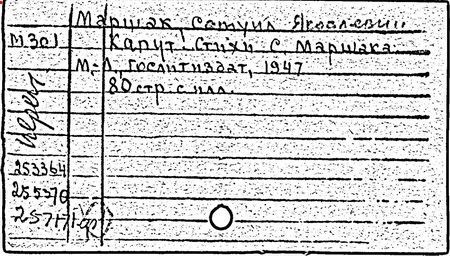 Маршак, Самуил Яковлевич
М301 Капут. Стихи С. Маршака.
М.-Л. Гослитиздат, 1947
80 стр. с илл.
253364
255376